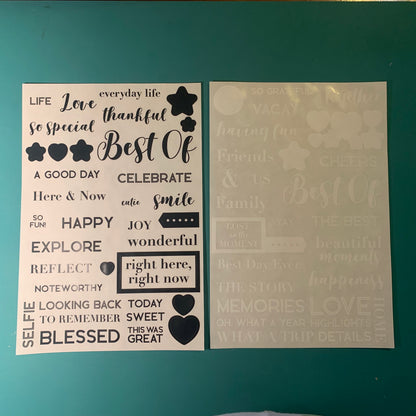 LIFE
Love
everyday life
so special
thankful
Best Of
A GOOD DAY
CELEBRATE
Here & Now
cutie
smile
SO
FUN!
HAPPY
JOY
EXPLORE
wonderful
REFLECT
right here,
right now
NOTEWORTHY
SELFIE
LOOKING BACK
TO REMEMBER
BLESSED
TODAY
SWEET
THIS WAS
GREAT
SO GRATEFUL!
together
VACAY
having fun
CHEERS
Friends
& us
Family
Best Of
LOST
in the
MOMENT
THE BEST
beautiful
moments
Best Day Ever
happiness
THE STORY
MEMORIES
LOVE
HOME
OH, WHAT A YEAR
HIGHLIGHTS
WHAT A TRIP
DETAILS